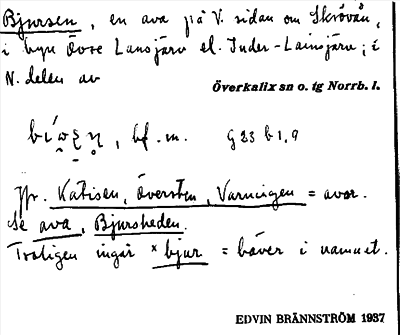 Bjursen, en ava på V. sidan om Skrövån,
i byn Övre Lansjärv el. Inder-Lainsjärv; i
N. delen av
Överkalix sn o. tg Norrb. l.
bf. m. G 23 b 1, 9
Jfr. Katisen, Översten, Varningen = avor.
Se ava, Bjursheden.
Troligen ingår *bjur = bäver i namnet.
EDVIN BRÄNNSTRÖM 1937